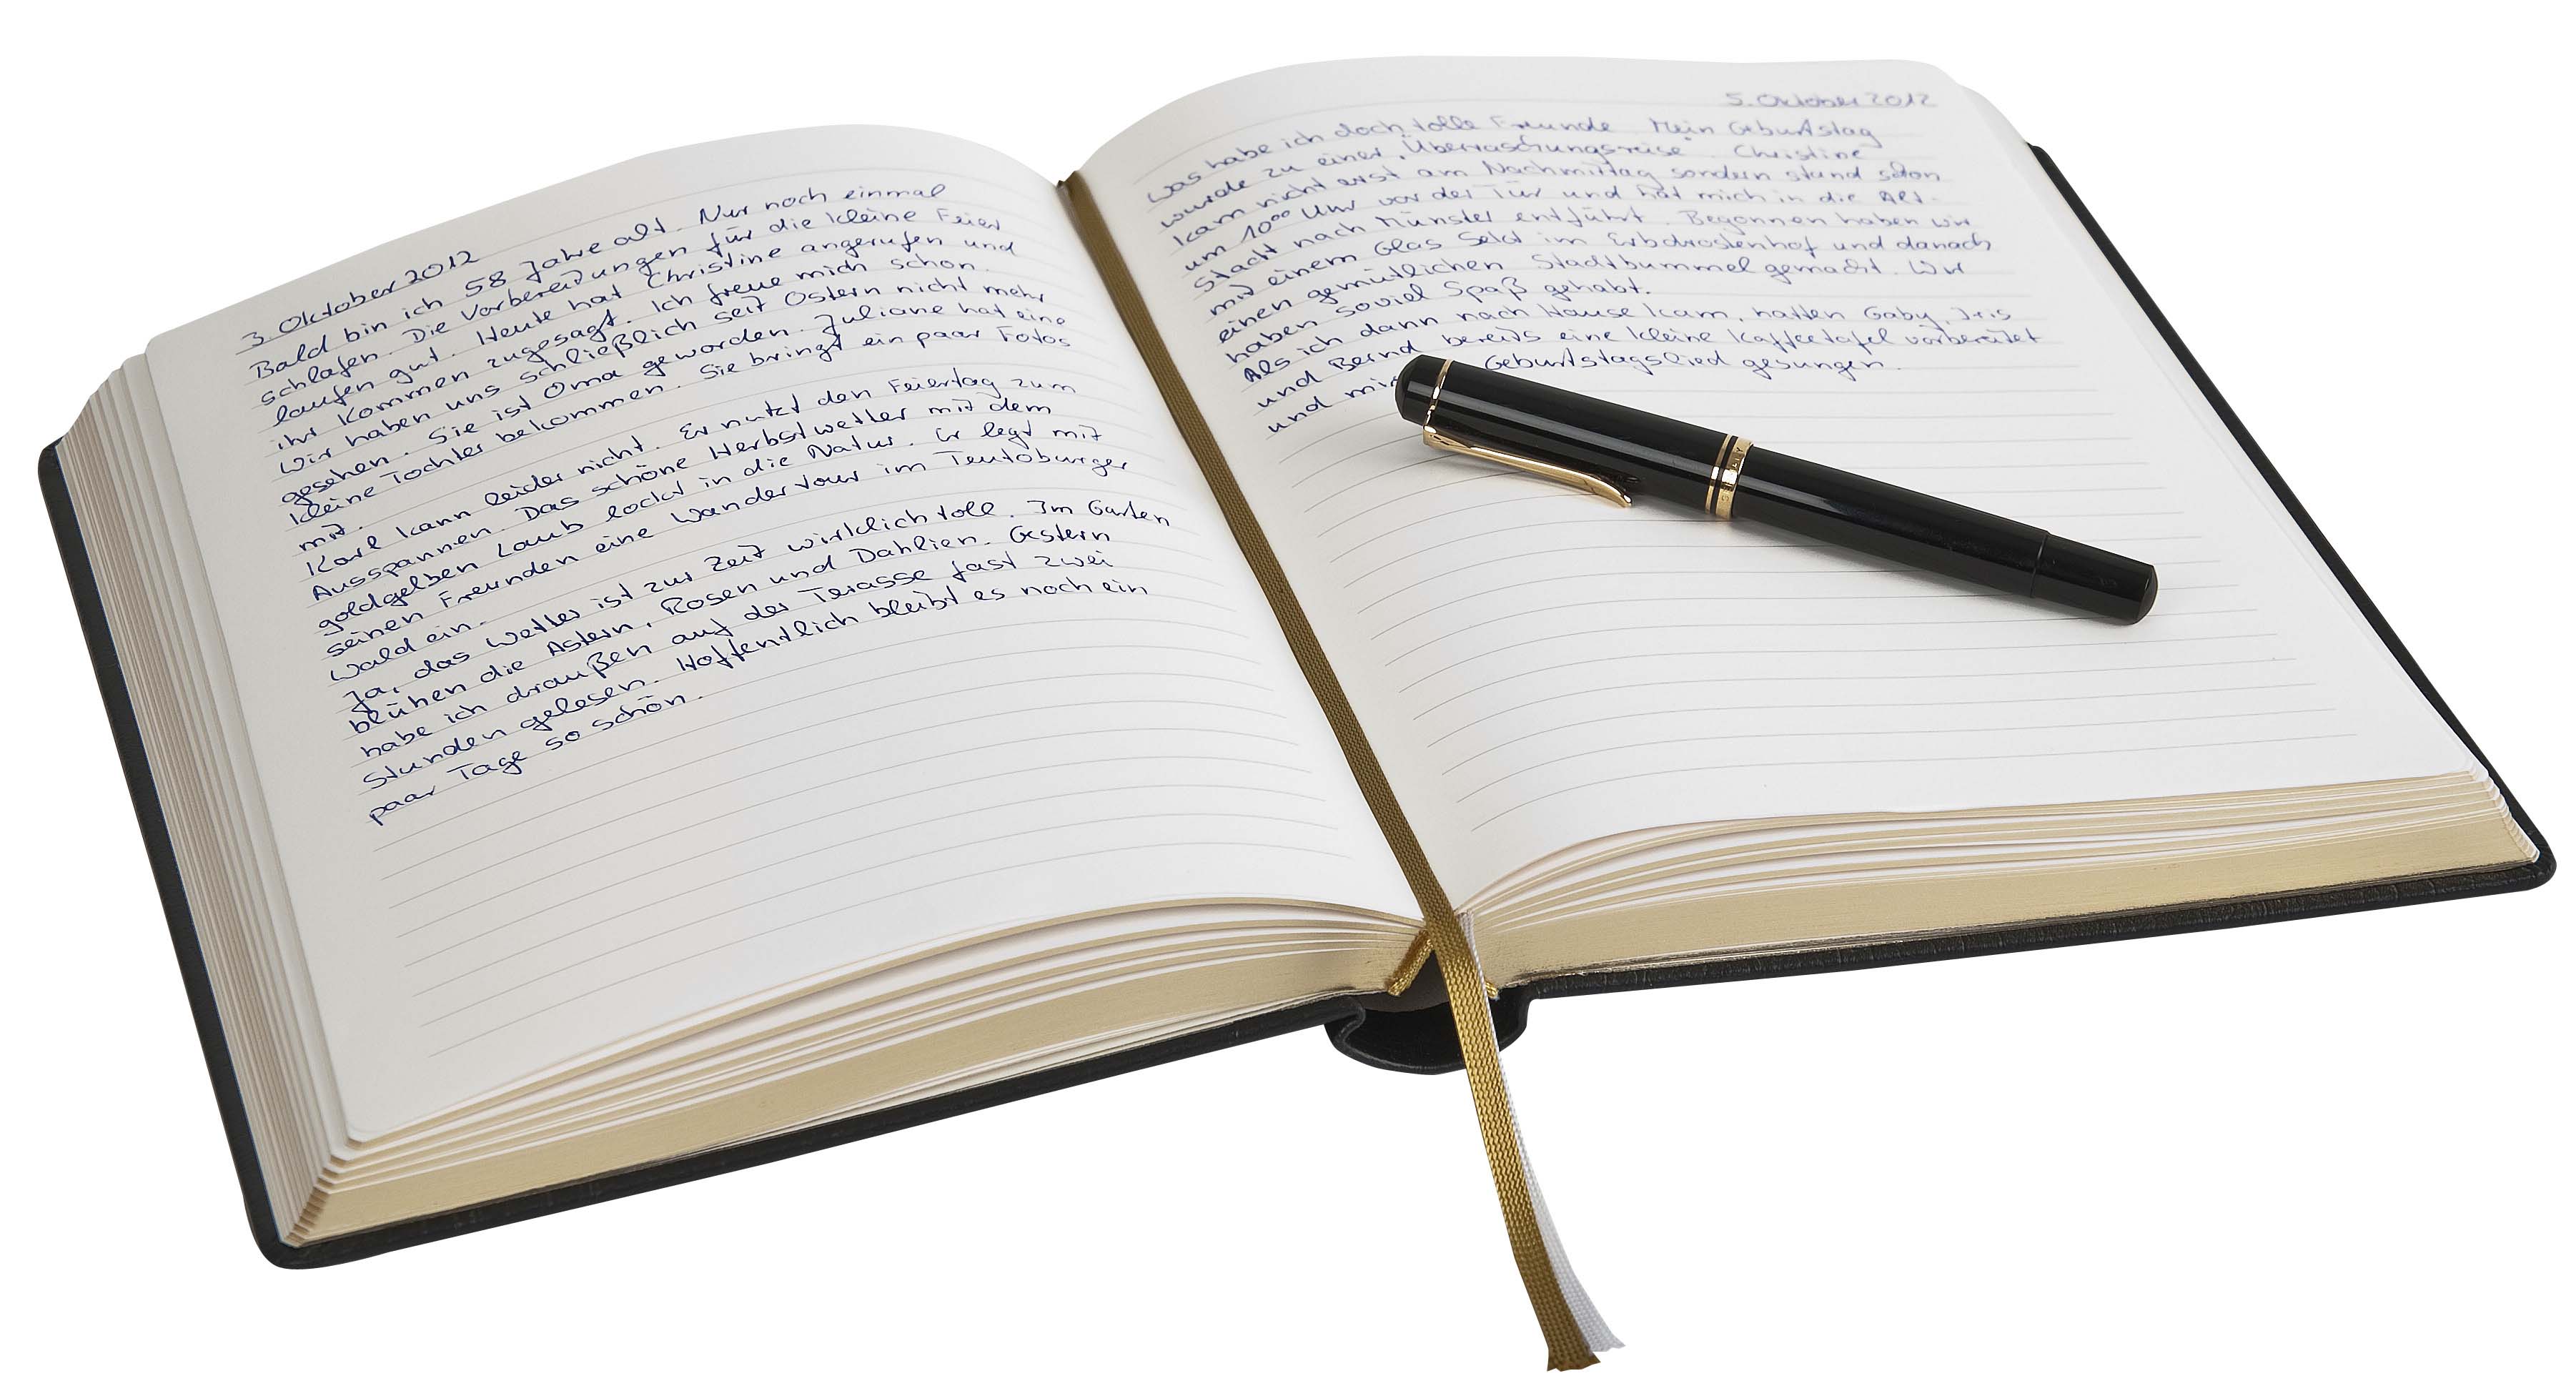 3. Oktober 2012
Bald bin ich 58 Jahre alt. Nur noch einmal
schlafen. Die Vorbereitungen für die kleine Feier
laufen gut. Heute hat Christine angerufen und
ihr Kommen zugesagt. Ich freue mich schon.
Wir haben uns schließlich seit Ostern nicht mehr
gesehen. Sie ist Oma geworden. Juliane hat eine
kleine Tochter bekommen. Sie bringt ein paar Fotos
mit.
Karl kann leider nicht. Er nutzt den Feiertag zum
Ausspannen. Das schöne Herbstwetter mit dem
goldgelben Laub lockt in die Natur. Er legt mit
seinen Freunden eine Wandertour im Teutoburger
Wald ein.
Ja, das Wetter ist zur Zeit wirklich toll. Im Garten
blühen die Astern, Rosen und Dahlien. Gestern
habe ich draußen auf der Terasse fast zwei
Stunden gelesen. Hoffentlich bleibt es noch ein
paar Tage so schön.
5. Oktober 2012
Was habe ich doch tolle Freunde Mein Geburtstag
wurde zu einer "Überraschungsreise". Christine
kam nicht erst am Nachmittag sondern stand schon
um 10⁰⁰ Uhr vor der Tür und hat mich in die Alt-
Stadt nach Münster entführt. Begonnen haben wir
mit einem Glas Sekt im Erbdrostenhof und danach
einen gemütlichen Stadtbummel gemacht. Wir
haben soviel Spaß gehabt.
Als ich dann nach Hause kam, hatten Gaby, Iris
und Bernd bereits eine kleine Kaffeetafel vorbereitet
und mir Geburtstagslied gesungen.